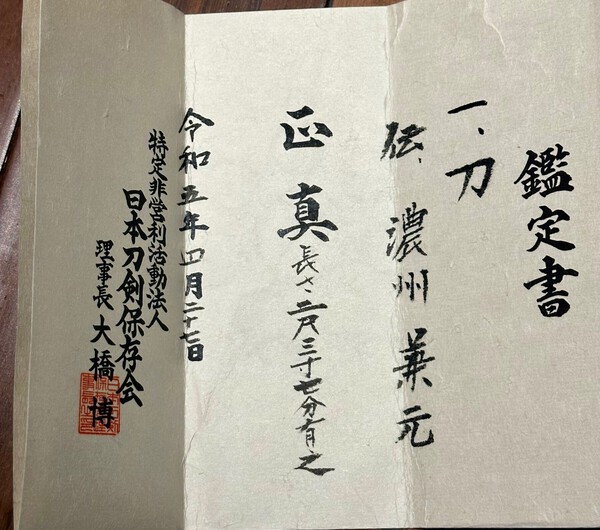 鑑定書
一、刀
伝、濃州兼元
正真
長さ二尺三寸七分有之
令和五年四月二十七日
特定非営利活動法人
日本刀剣保存会
理事長 大橋 博